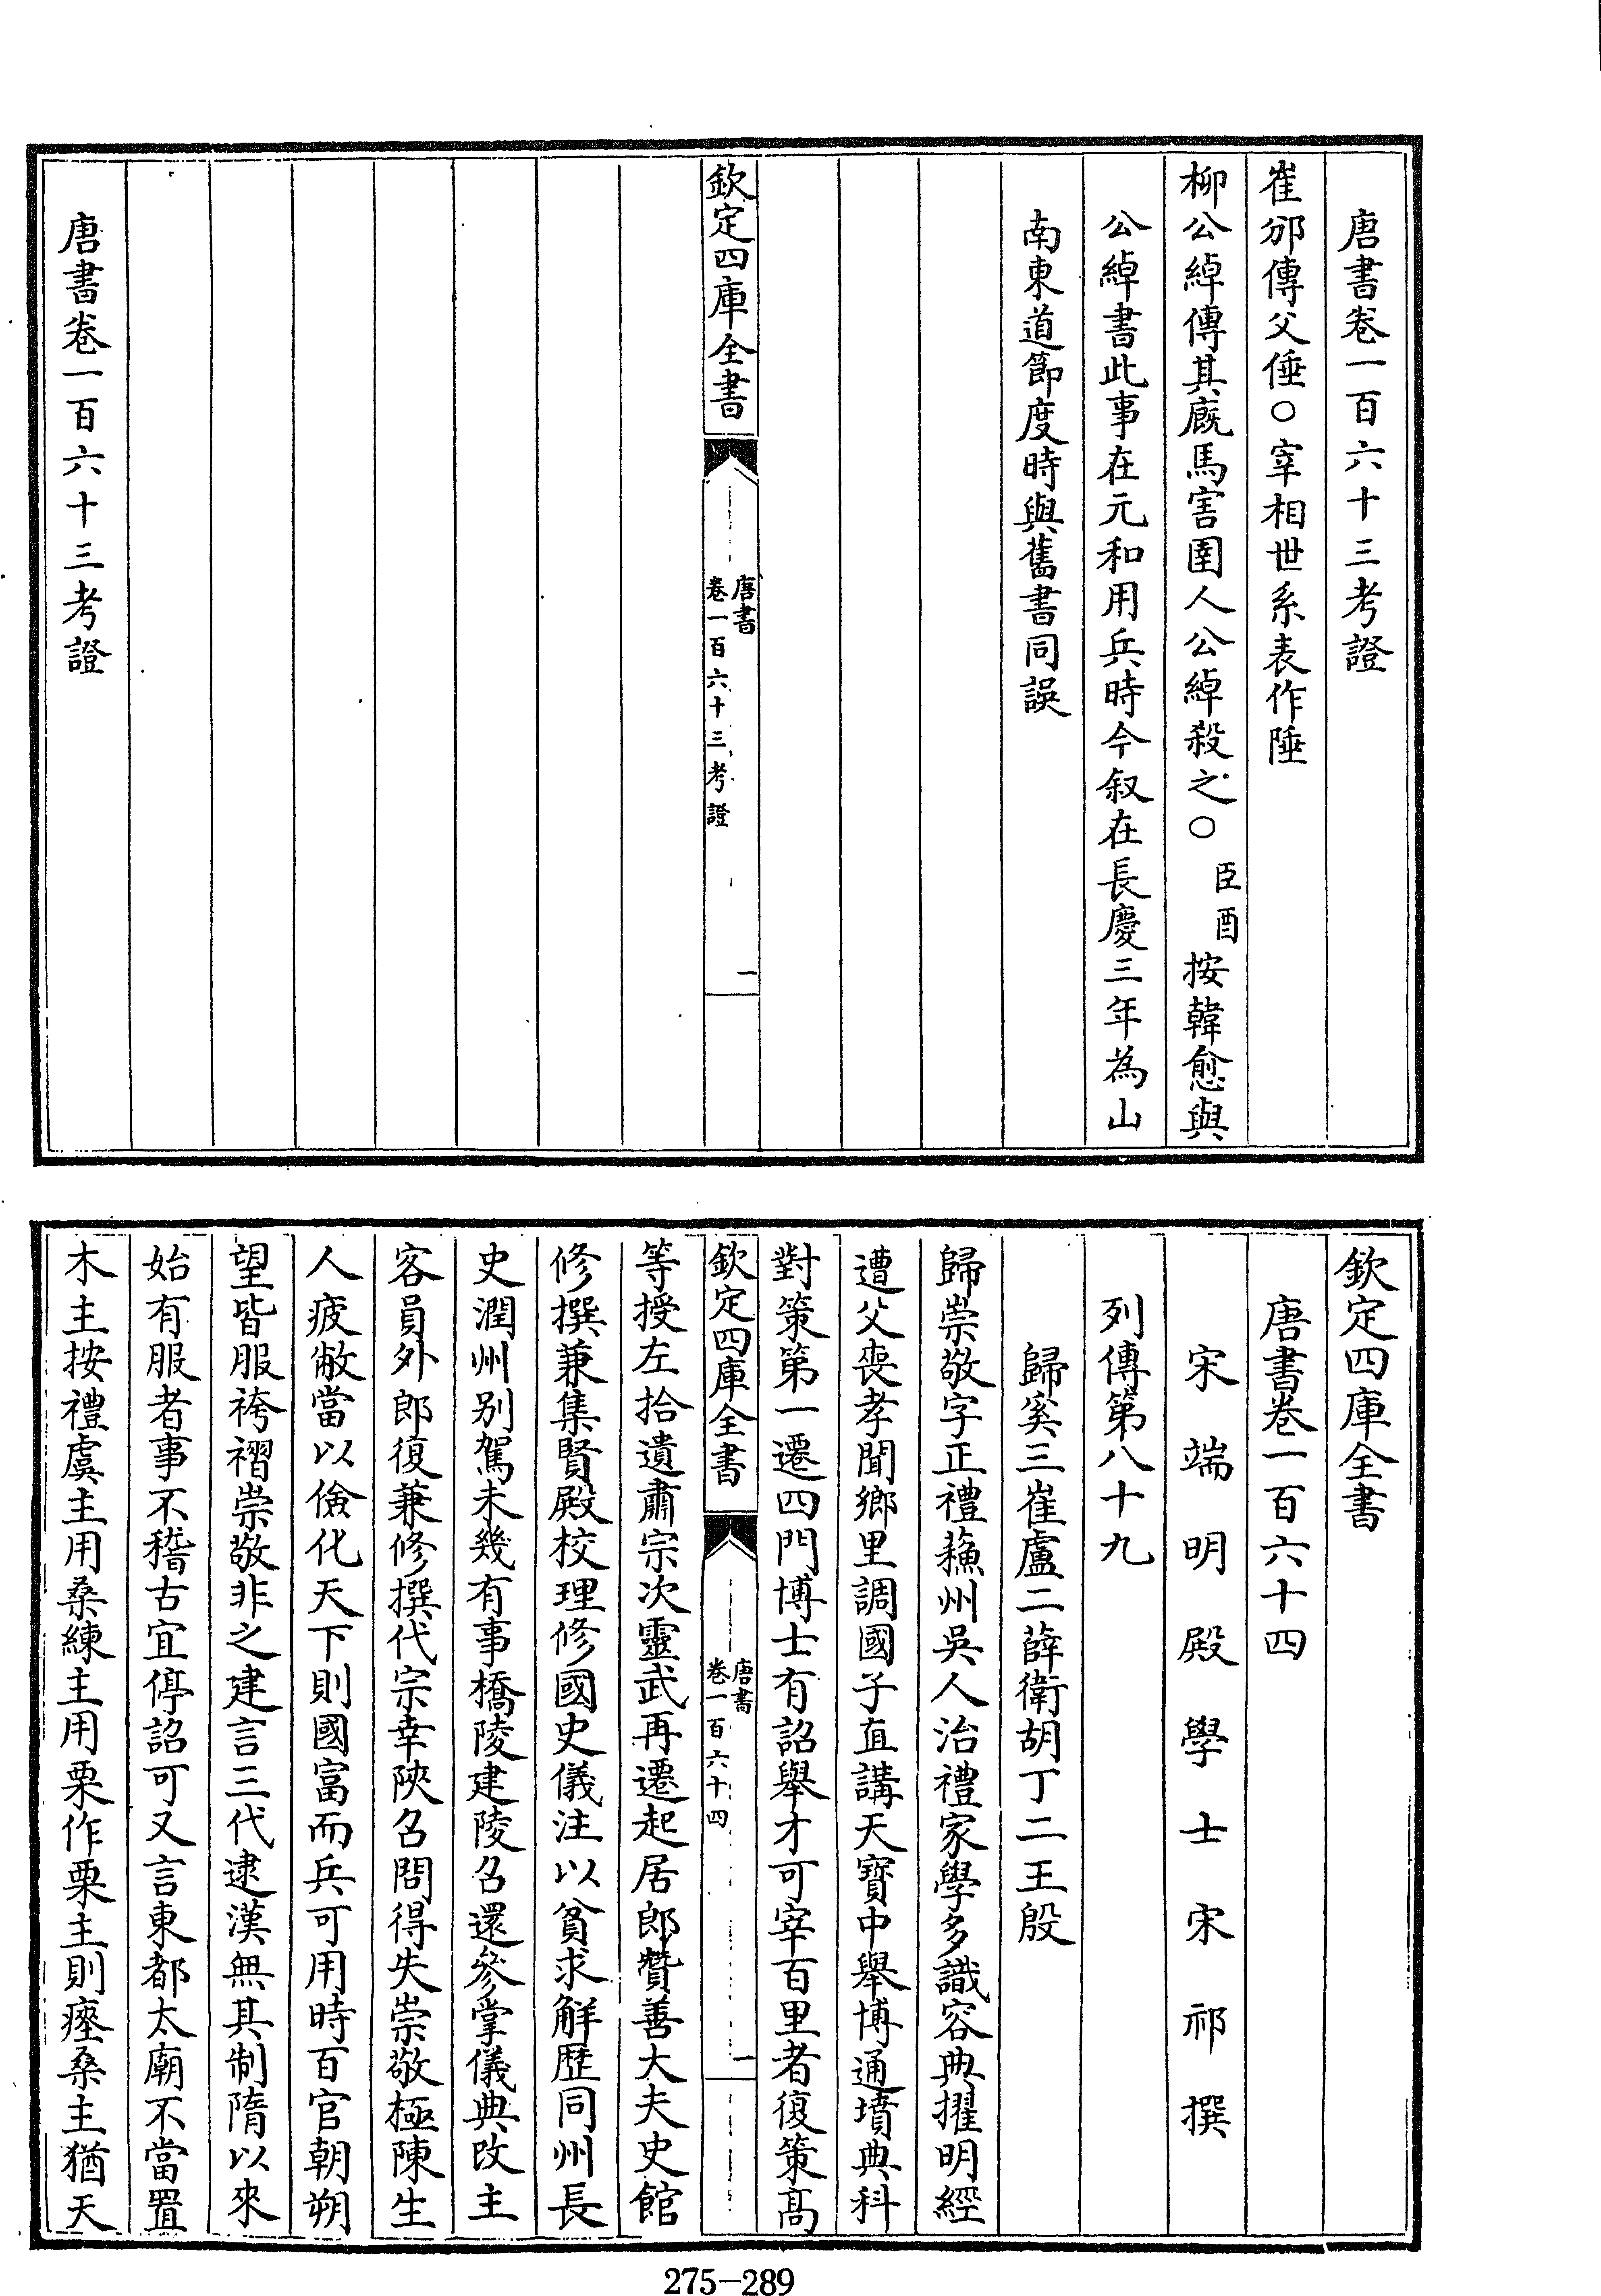 唐書卷一百六十三考證
崔邠傳父倕○宰相世系表作陲
柳公綽傳其廐馬害圉人公綽殺之○臣酉按韓愈與
公綽書此事在元和用兵時今叙在長慶三年為山
南東道節度時與舊書同誤
欽定四庫全書
唐書
卷一百六十三考證
一
唐書卷一百六十三考證
欽定四庫全書
唐書卷一百六十四
宋端明殿學士宋祁撰
列傳第八十九
歸奚三崔盧二薛衛胡丁二王殷
歸崇敬字正禮蘇州吳人治禮家學多識容典擢明經
遭父喪孝聞鄉里調國子直講天寶中舉博通墳典科
對策第一遷四門博士有詔舉才可宰百里者復策髙
欽定四庫全書
唐書
卷一百六十四
一
等授左拾遺肅宗次靈武再遷起居郎贊善大夫史館
修撰兼集賢殿校理修國史儀注以貧求解歴同州長
史潤州别駕未幾有事橋陵建陵召還參掌儀典改主
客員外郎復兼修撰代宗幸陜召問得失崇敬極陳生
人疲敝當以儉化天下則國富而兵可用時百官朝朔
望皆服袴褶崇敬非之建言三代逮漢無其制隋以來
始有服者事不稽古宜停詔可又言東都太廟不當置
木主按禮虞主用桑練主用栗作栗主則瘞桑主猶天
275-289